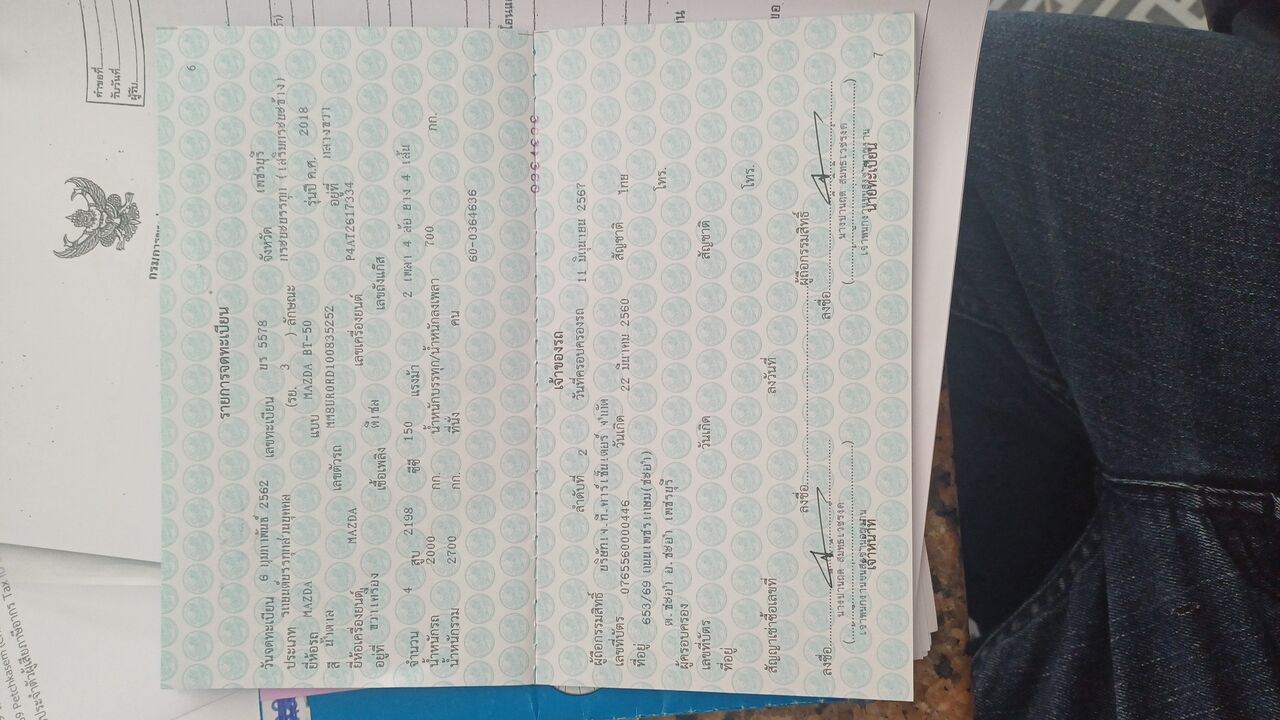 6
รายการจดทะเบียน
วันจดทะเบียน 6 กุมภาพันธ์ 2562 เลขทะเบียน ยร 5578 จังหวัด เพชรบุรี
ประเภท รถยนต์บรรทุกส่วนบุคคล (รย. 3 ) ลักษณะ กระบะบรรทุก (เสริมกระบะข้าง)
ยี่ห้อรถ MAZDA แบบ MAZDA BT-50 รุ่นปี ค.ศ. 2018
สี น้ำตาล เลขตัวรถ MM8UR0RD100835252 อยู่ที่ กลางขวา
ยี่ห้อเครื่องยนต์ MAZDA เลขเครื่องยนต์ P4AT2617334
อยู่ที่ ขวาเครื่อง เชื้อเพลิง ดีเซล เลขถังแก๊ส
จำนวน 4 สูบ 2198 ซีซี 150 แรงม้า 2 เพลา 4 ล้อ ยาง 4 เส้น
น้ำหนักรถ 2000 กก. น้ำหนักบรรทุก/น้ำหนักลงเพลา 700 กก.
น้ำหนักรวม 2700 กก. ที่นั่ง คน
60-0364636
เจ้าของรถ
ลำดับที่ 2 วันที่ครอบครองรถ 11 มิถุนายน 2567
ผู้ถือกรรมสิทธิ์ บริษัทเจ.ที.คาร์เซ็นเตอร์ จำกัด
เลขที่บัตร 0765560000446 วันเกิด 22 มีนาคม 2560 สัญชาติ ไทย
ที่อยู่ 653/69 ถนนเพชรเกษม(ชะอำ) โทร.
ต.ชะอำ อ.ชะอำ เพชรบุรี
ผู้ครอบครอง
เลขที่บัตร วันเกิด สัญชาติ
ที่อยู่ โทร.
สัญญาเช่าซื้อเลขที่ ลงวันที่
ลงชื่อ ผู้ถือกรรมสิทธิ์
ลงชื่อ ลงชื่อ
เจ้าหน้าที่ นายทะเบียน
7
คำขอที่
รับวันที่
ผู้รับ